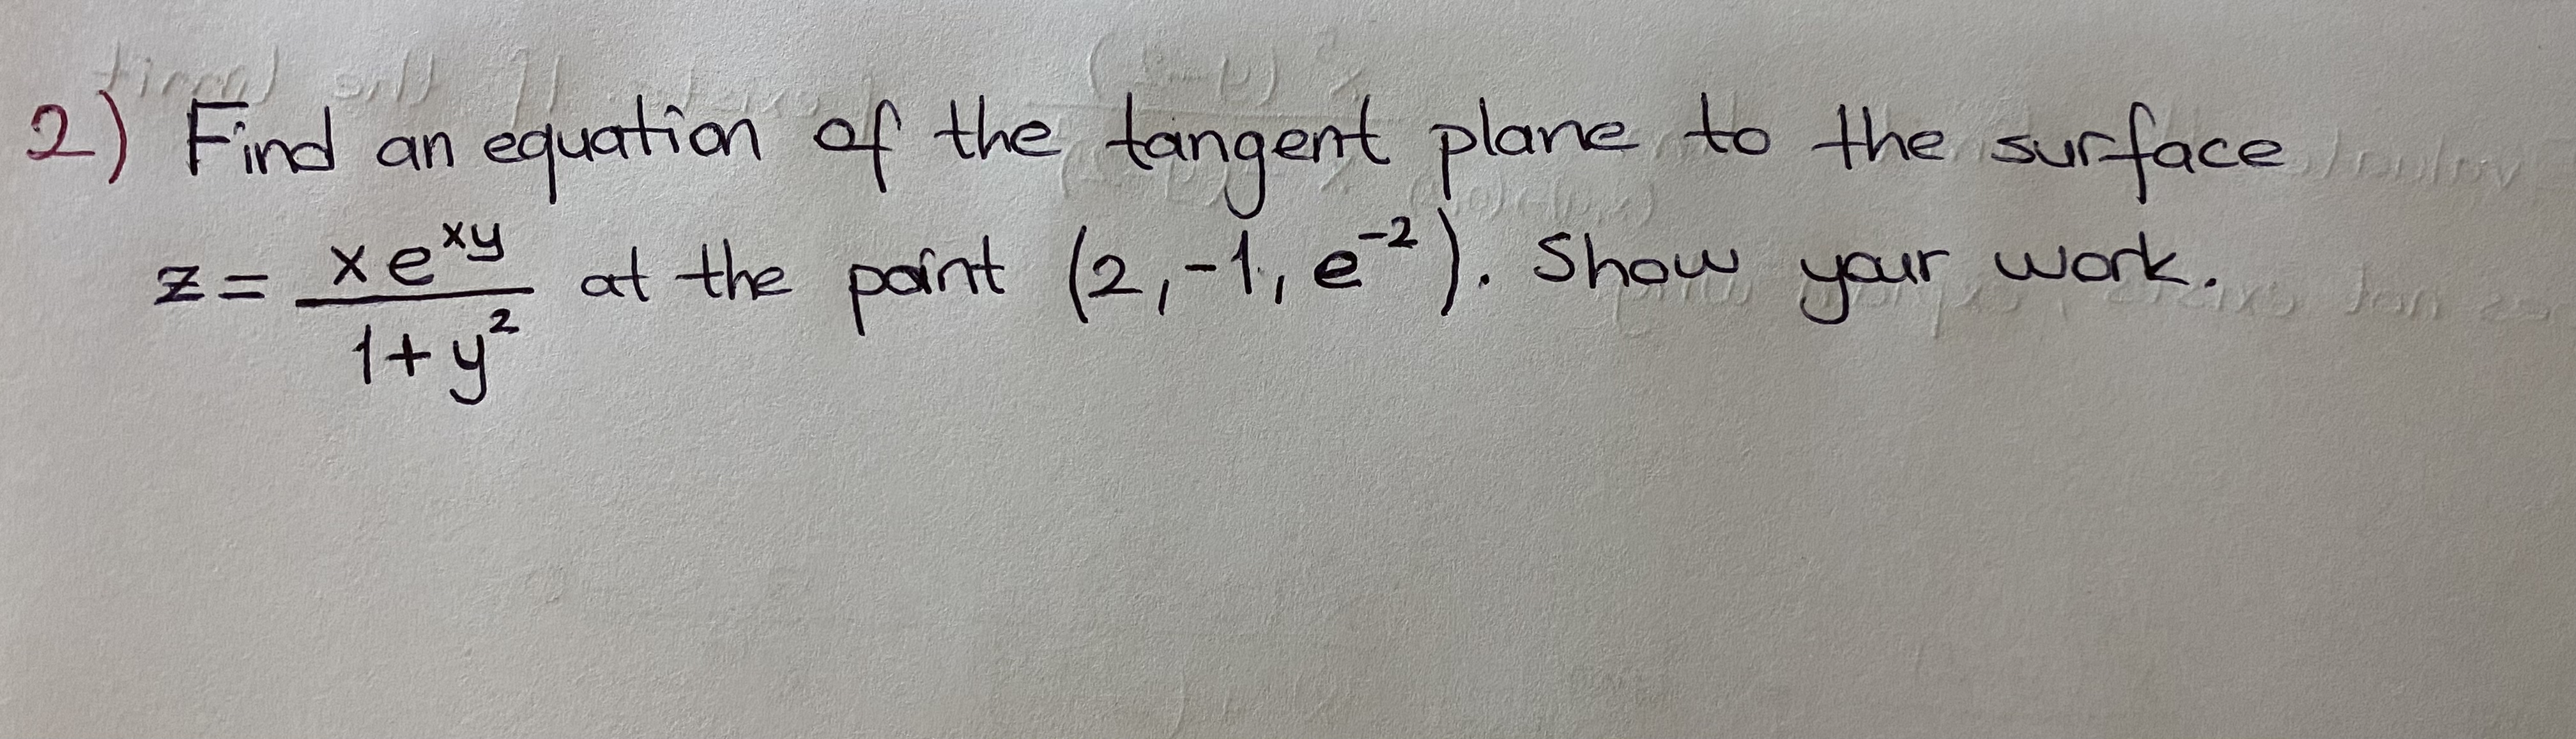 2) Find an equation of the tangent plane to the surface
z = \frac{xe^{xy}}{1+y^2} at the point (2,-1, e^{-2}). Show your work.